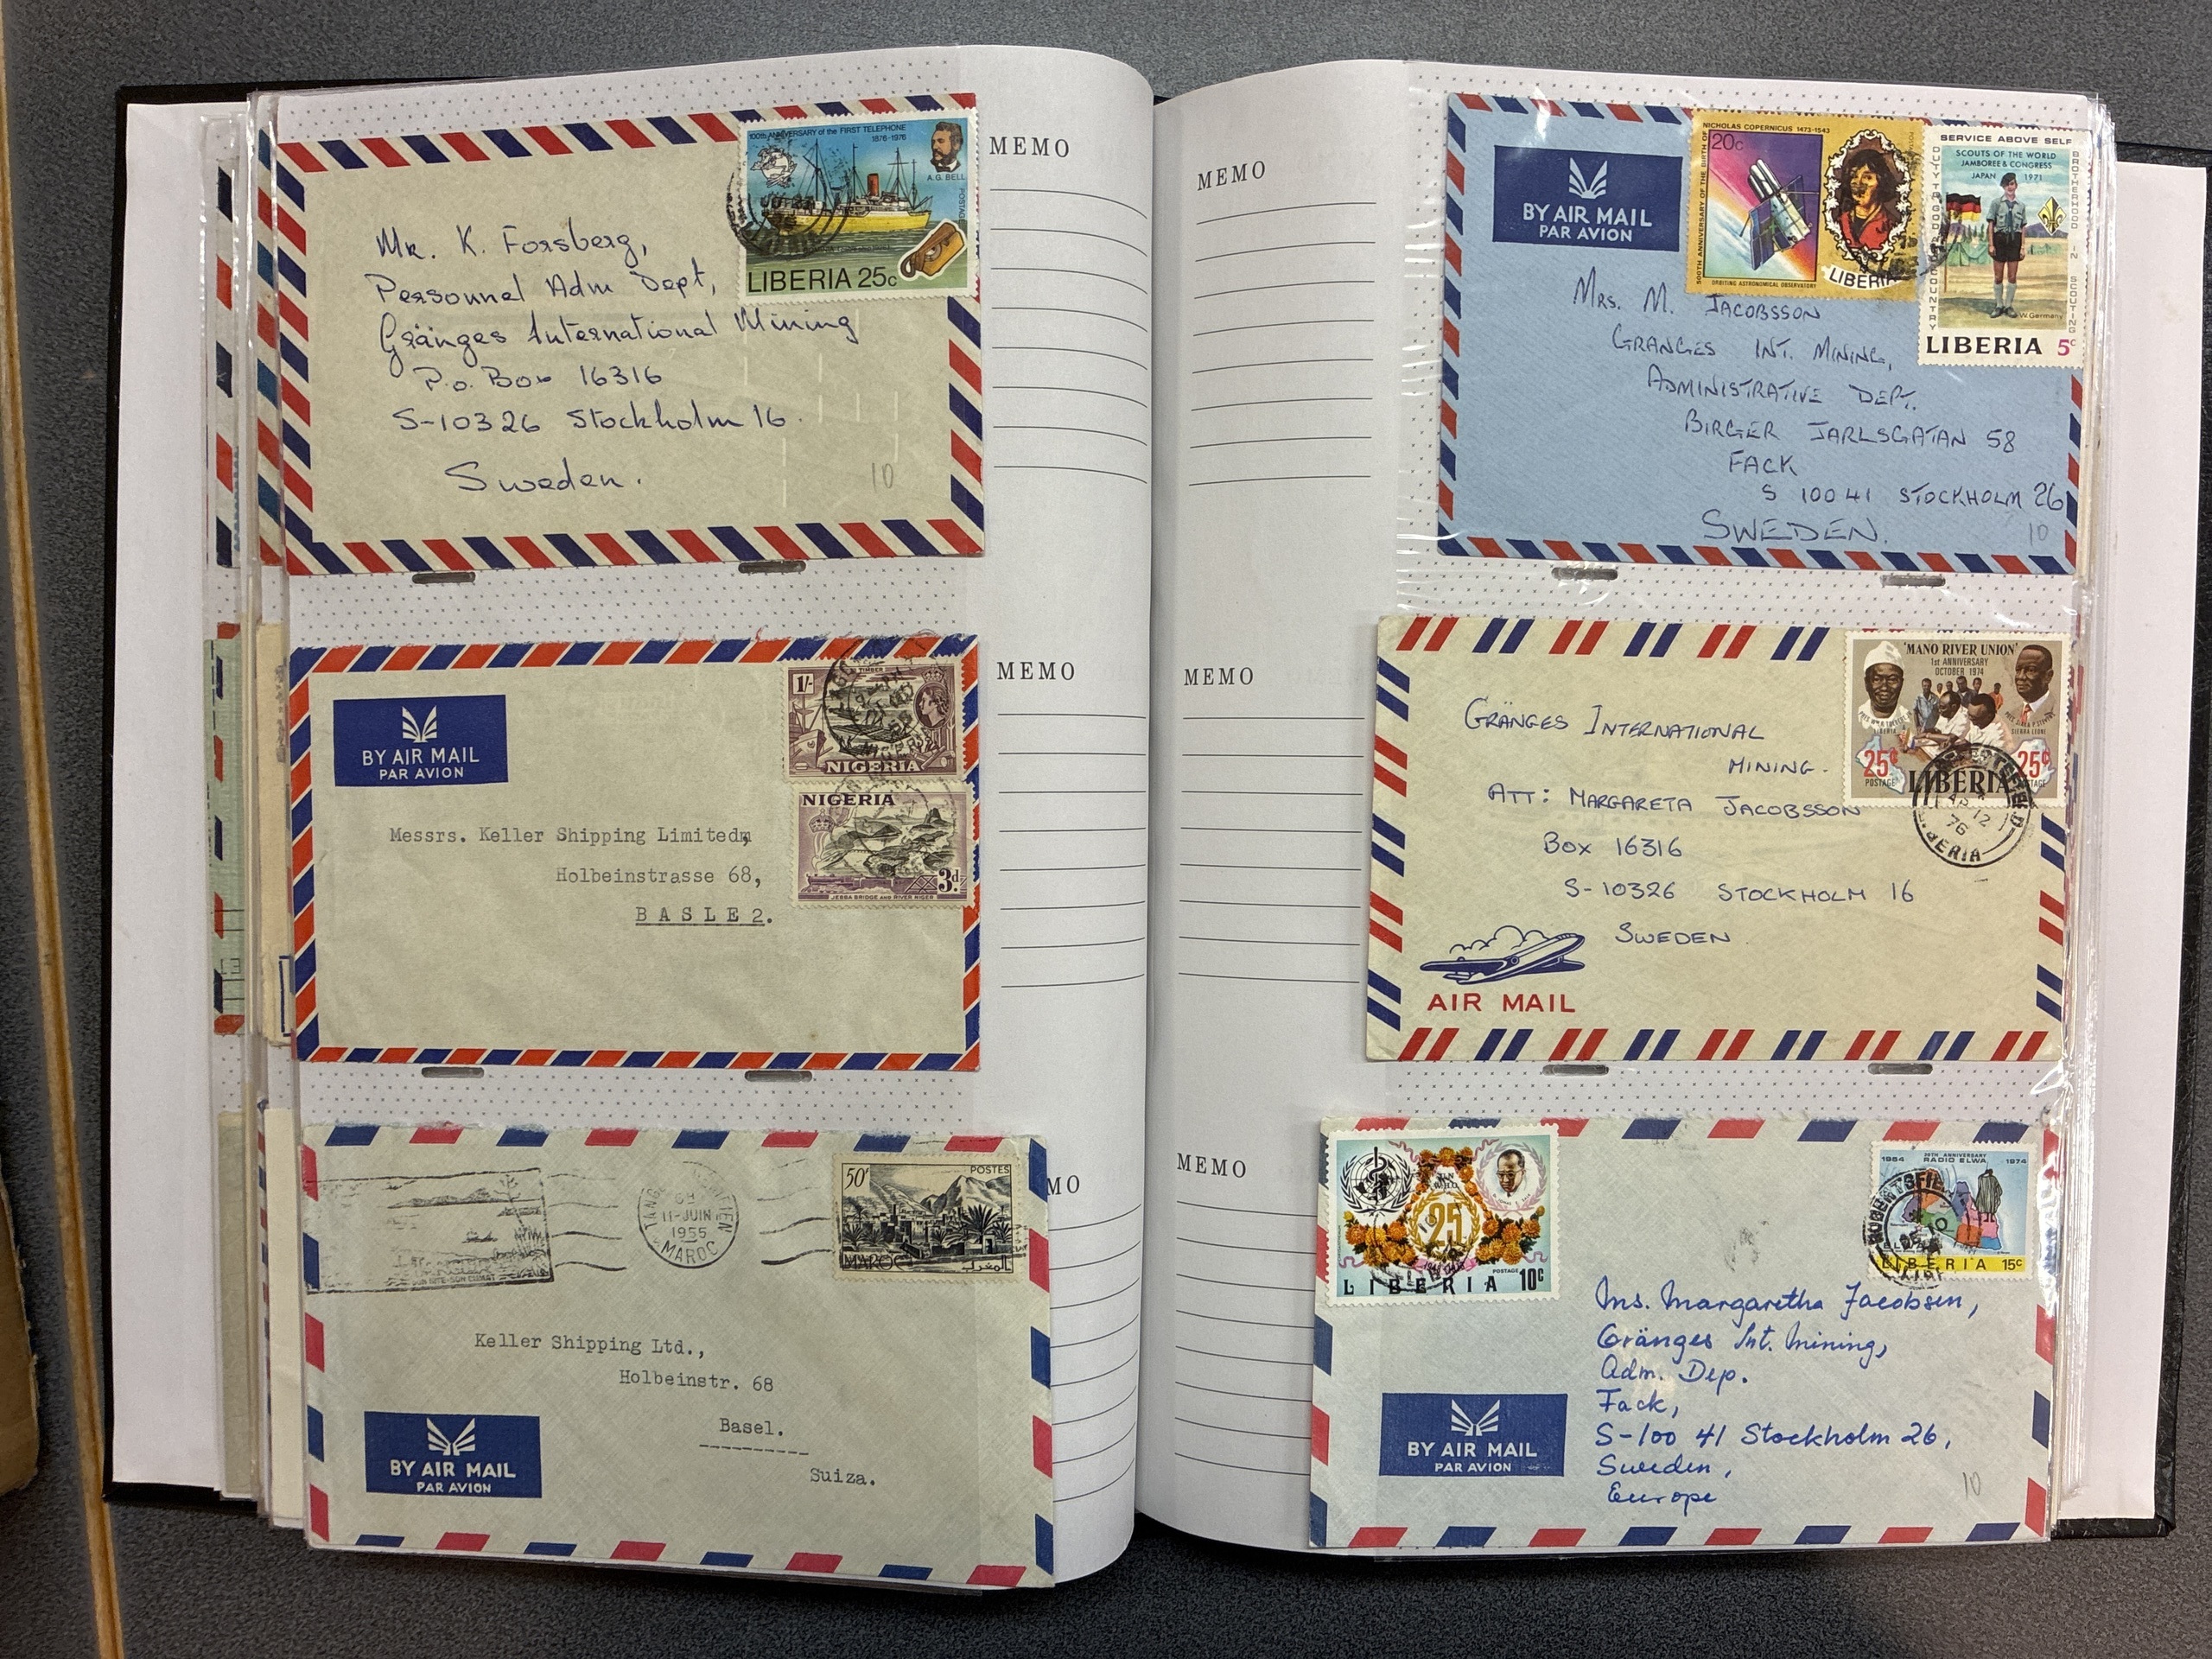 MEMO
100th ANNIVERSARY of the FIRST TELEPHONE
1876-1976
A.G. BELL
POSTAGE
LIBERIA 25c
Mr. K. Forsberg,
Personnel Adm Dept,
Gränges International Mining
P.O. Box 16316
S-10326 Stockholm 16.
Sweden.
10
MEMO
TIMBER
1/-
NIGERIA
NIGERIA
3d.
JEBBA BRIDGE AND RIVER NIGER
BY AIR MAIL
PAR AVION
Messrs. Keller Shipping Limited,
Holbeinstrasse 68,
BASLE 2.
MO
11-JUIN
1955
MAROC
50f
POSTES
MAROC
المغرب
Keller Shipping Ltd.,
Holbeinstr. 68
Basel.
Suiza.
BY AIR MAIL
PAR AVION
MEMO
BY AIR MAIL
PAR AVION
NICHOLAS COPERNICUS 1473-1543
500TH ANNIVERSARY OF THE BIRTH OF
20c
ORBITING ASTRONOMICAL OBSERVATORY
LIBERIA
SERVICE ABOVE SELF
SCOUTS OF THE WORLD
JAMBOREE & CONGRESS
JAPAN 1971
DUTY TO GOD AND COUNTRY
BROTHERHOOD IN SCOUTING
W. Germany
LIBERIA 5c
MRS. M. JACOBSSON
GRANGES INT. MINING,
ADMINISTRATIVE DEPT.
BIRGER JARLSGATAN 58
FACK
S 10041 STOCKHOLM 26
SWEDEN.
10
MEMO
'MANO RIVER UNION'
1st ANNIVERSARY
OCTOBER 1974
LIBERIA
SIERRA LEONE
25c
POSTAGE
25c
LIBERIA
12
76
GRÄNGES INTERNATIONAL
MINING.
ATT: MARGARETA JACOBSSON
BOX 16316
S-10326 STOCKHOLM 16
SWEDEN
AIR MAIL
MEMO
25
POSTAGE
LIBERIA 10c
1954 20TH ANNIVERSARY 1974
RADIO ELWA
LIBERIA 15c
Ms. Margaretha Jacobsen,
Gränges Int. Mining,
Adm. Dep.
Fack,
S-100 41 Stockholm 26,
Sweden,
Europe
BY AIR MAIL
PAR AVION
10